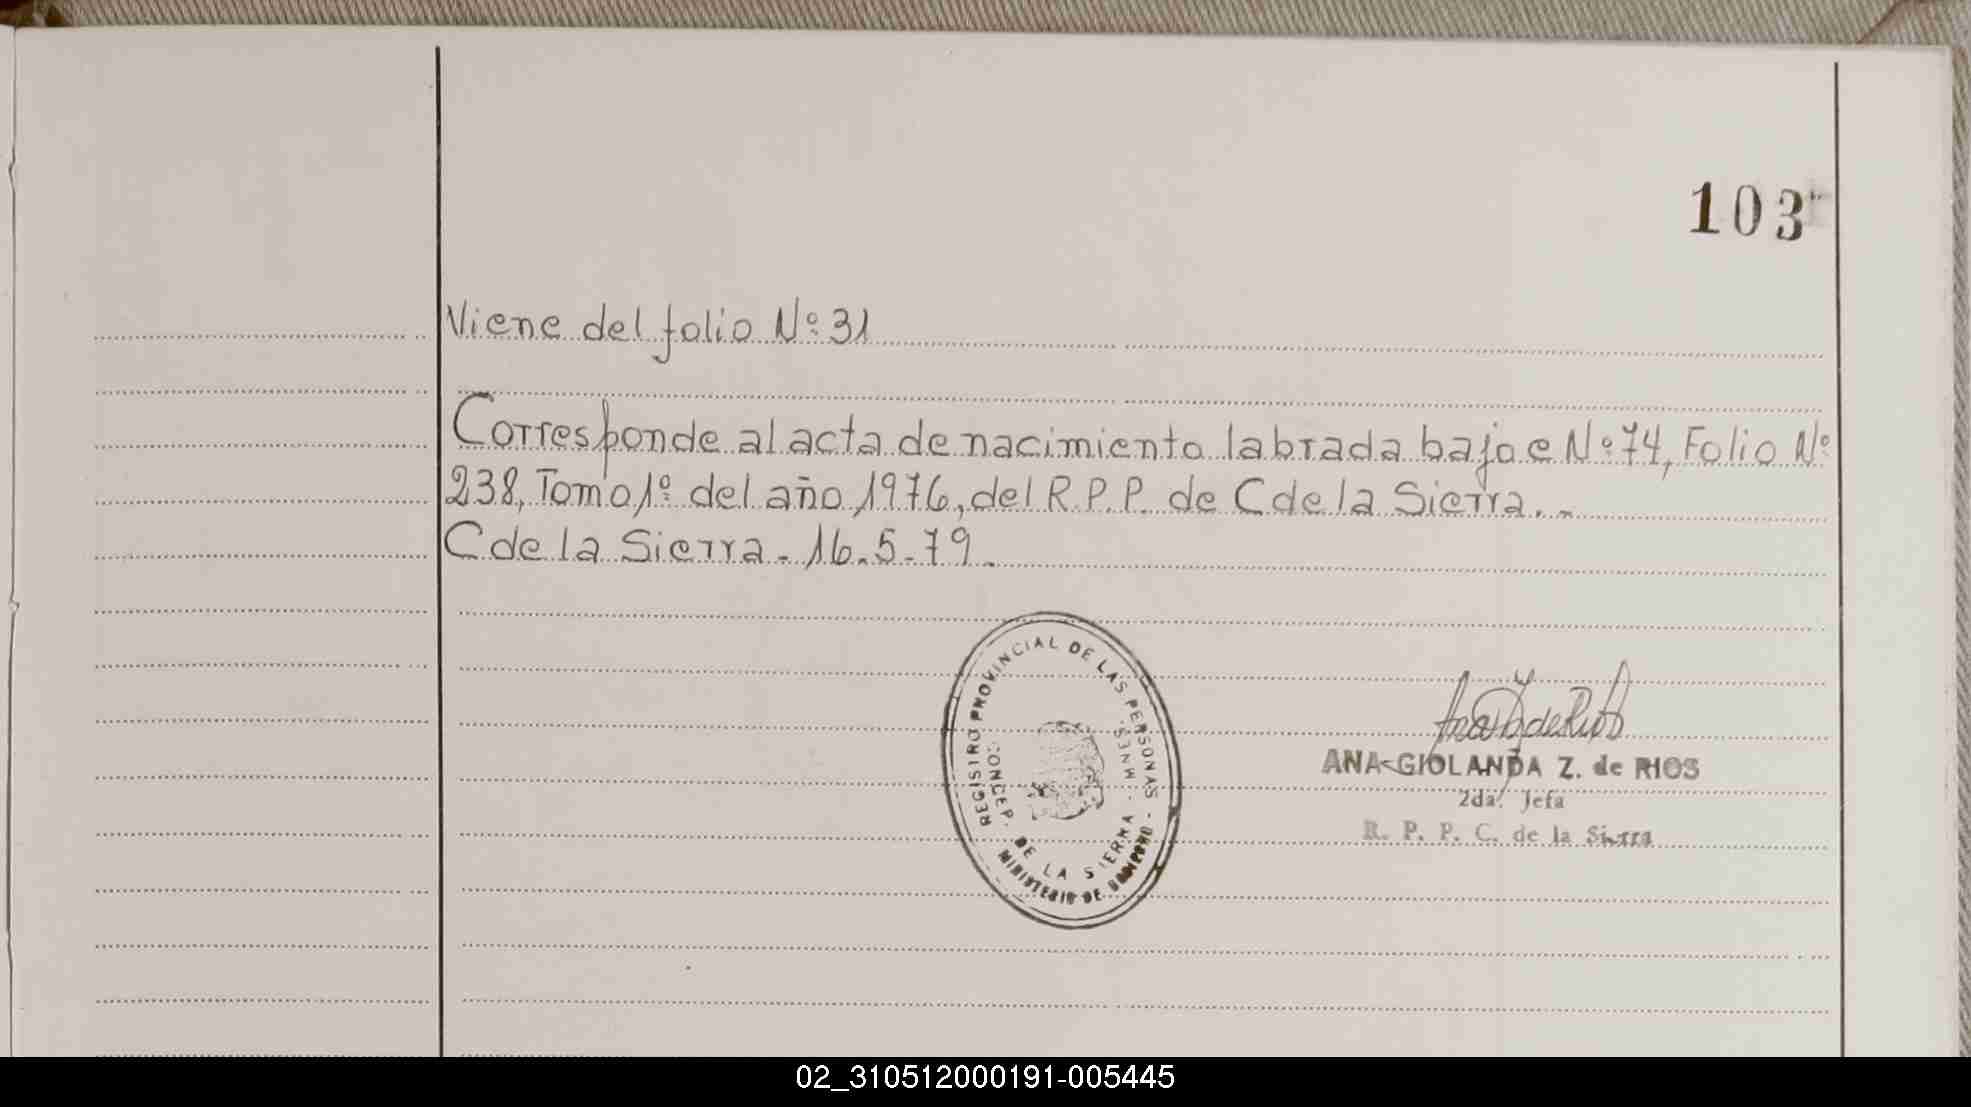 103
Viene del folio Nº 31
Corresponde al acta de nacimiento labrada bajo e Nº 74, Folio Nº
238, Tomo 1º del año 1976, del R.P.P. de C de la Sierra.-
C de la Sierra - 16.5-79.
REGISTRO PROVINCIAL DE LAS PERSONAS
CONCEP. DE LA SIERRA - MNES.
MINISTERIO DE GOBIERNO -
ANA GIOLANDA Z. de RIOS
2da. Jefa
R. P. P. C. de la Sierra
02_310512000191-005445